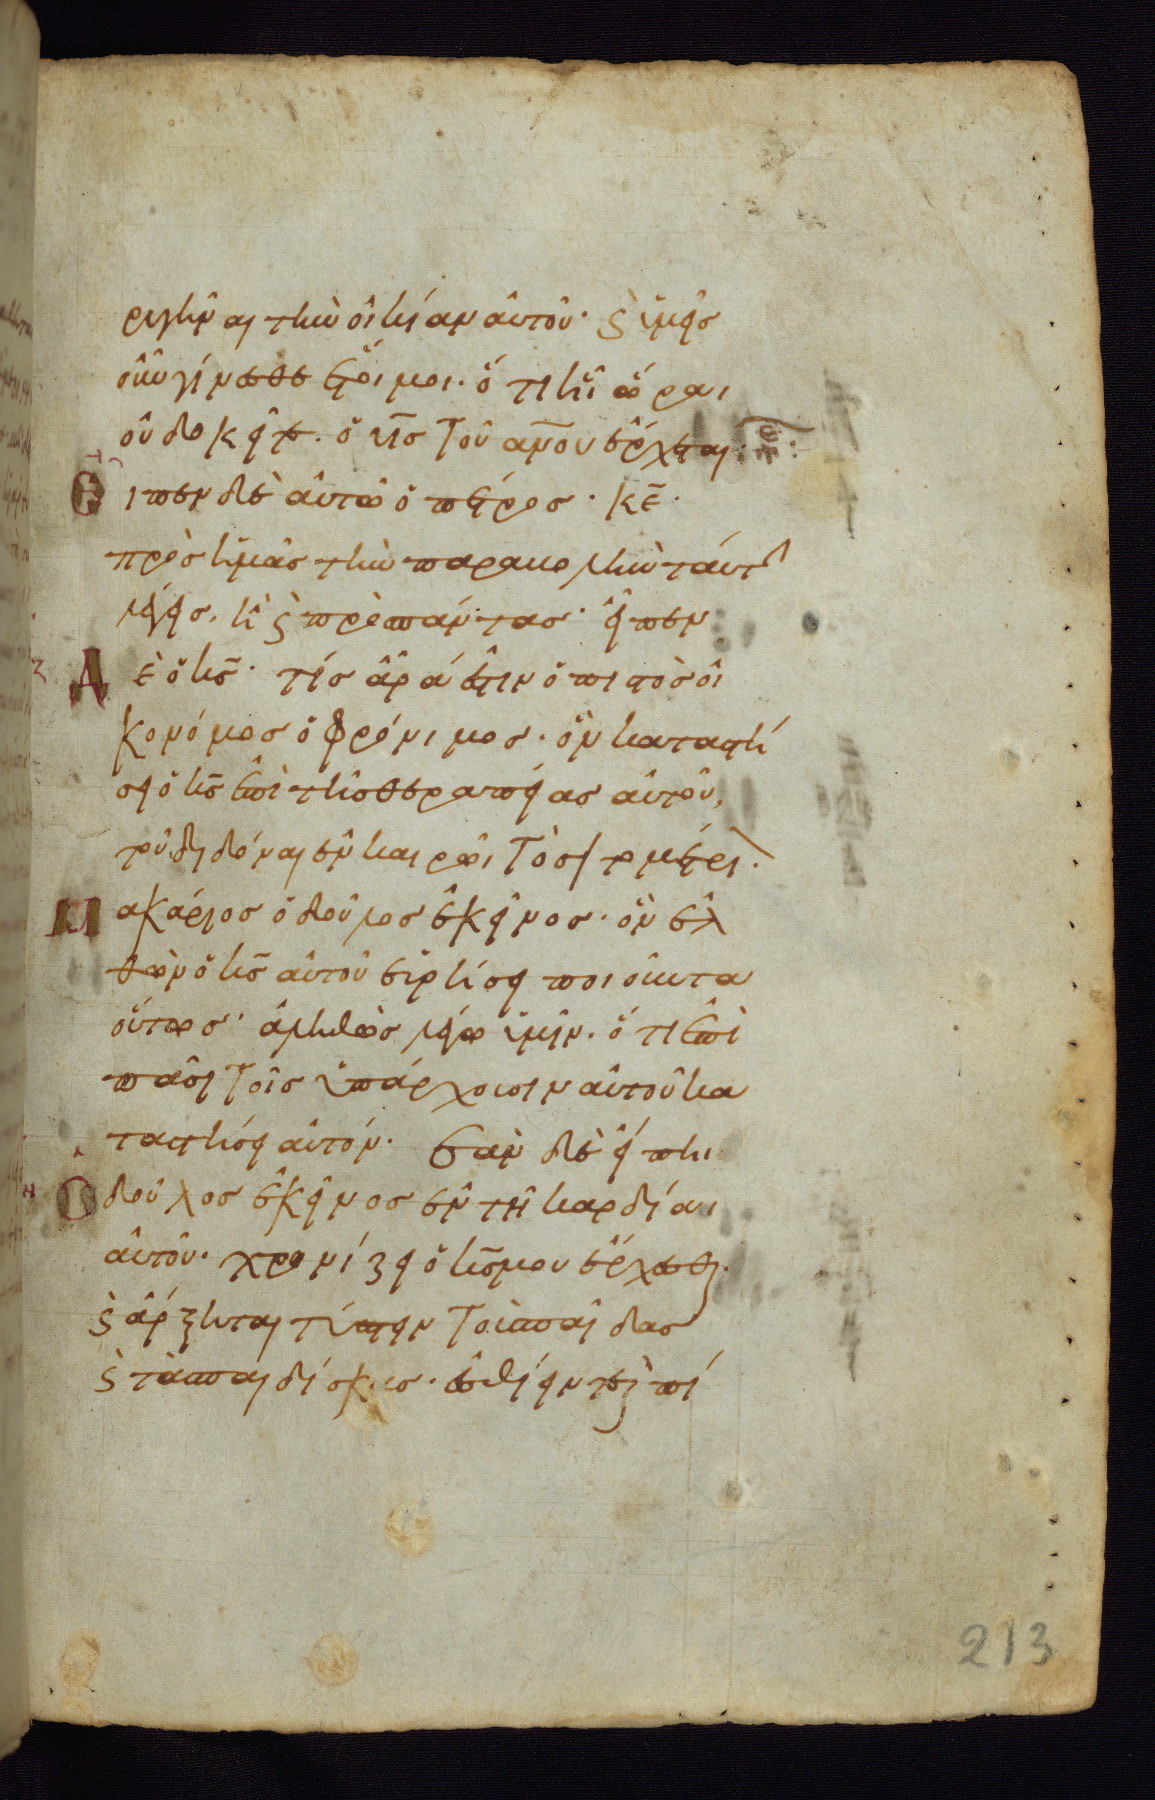 ρυγῆναι τὴν οἰκίαν αὐτοῦ· ϛ ὑμεῖς
οὖν γίνεσθε ἕτοιμοι· ὅτι ἧ ὥραι
οὐ δοκεῖτε· ὁ υἱ̅ς τοῦ α̅νου ἔρχεται·
Εἶπεν δὲ αὐτῶ ὁ πέτρος· κ̅ε·
πρὸς ἡμᾶς τὴν παρακολὴν ταύτ
λέγεις, ἢ ϛ πρὸς πάντας· εἶπεν
Δὲ ὁ κ̅ς· τίς ἄρά ἐστιν ὁ πιστὸς οἰ
κονόμος ὁ φρόνιμος· ὃν καταστή
σει ὁ κ̅ς ἐπὶ τῆς θεραπείας αὐτοῦ,
τοῦ διδόναι ἐν καιρῶι τὸ σιτομέτρι·
Μακάριος ὁ δοῦλος ἐκεῖνος· ὃν ἐλ
θὼν ὁ κ̅ς αὐτοῦ εὑρήσει ποιοῦντα
οὕτως· ἀληθῶς λέγω ὑμῖν· ὅτι ἐπὶ
πᾶσι τοῖς ὑπάρχουσιν αὐτοῦ κα
ταστήσει αὐτόν· ἐὰν δὲ εἴπηι
Ὁ δοῦλος ἐκεῖνος ἐν τῆ καρδίαι
αὐτοῦ· χρονίζει ὁ κ̅ς μου ἔρχεσθαι·
ϛ ἄρξηται τύπτειν τοὺς παῖδας
ϛ τὰς παιδίσκας· ἐσθίειν τε ϛ πί
213